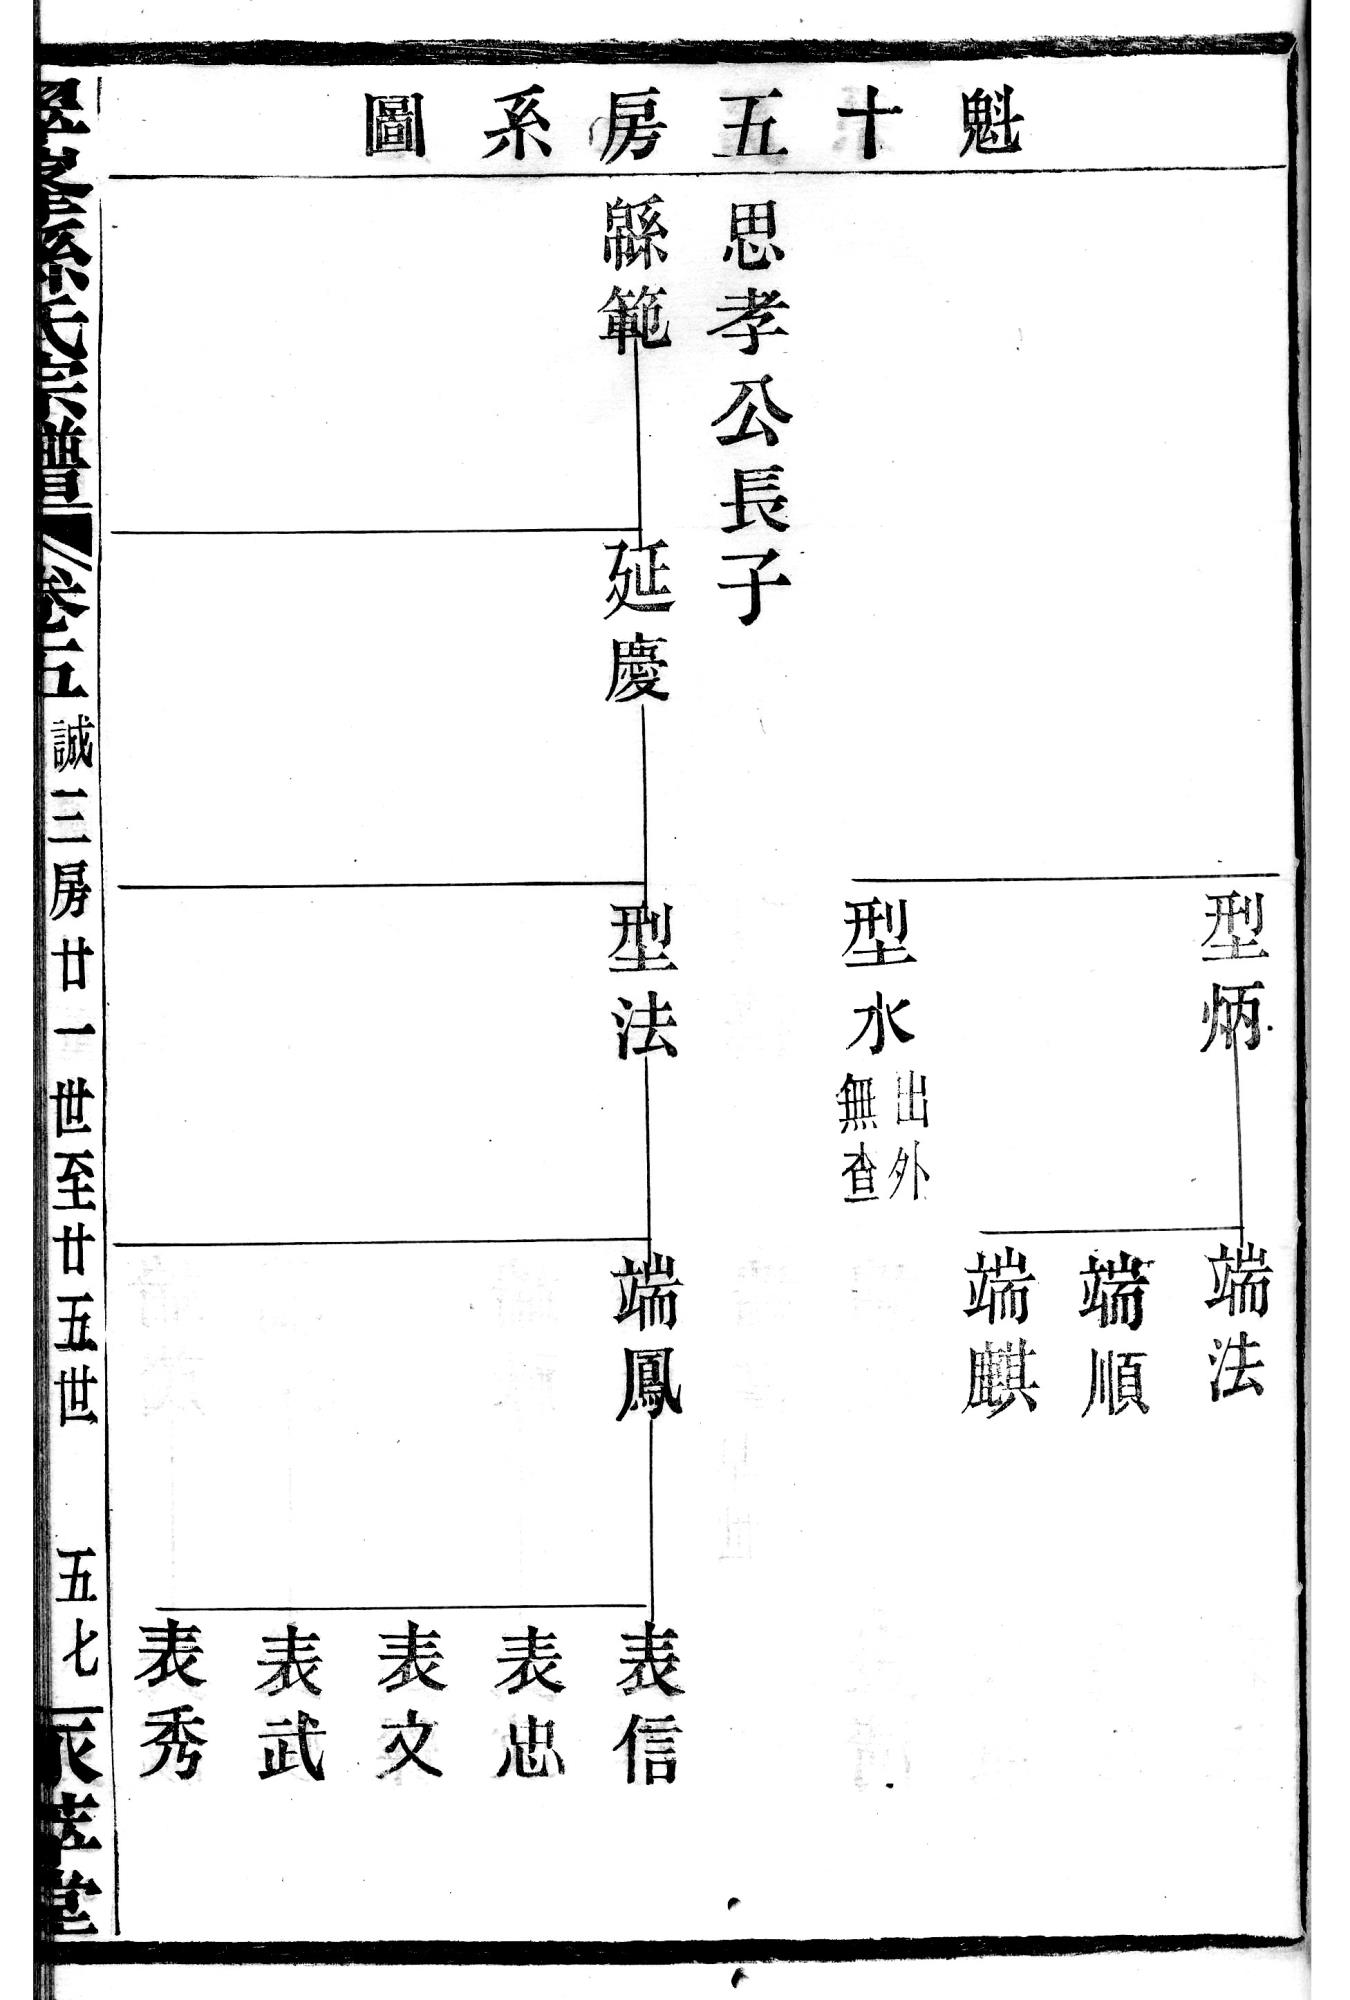 魁十五房系圖
型炳
端法
端順
端麒
型水
出外
無查
思孝公長子
緜範
延慶
型法
端鳳
表信
表忠
表文
表武
表秀
孫氏宗譜
卷五
誠三房廿一世至廿五世
五七
堂